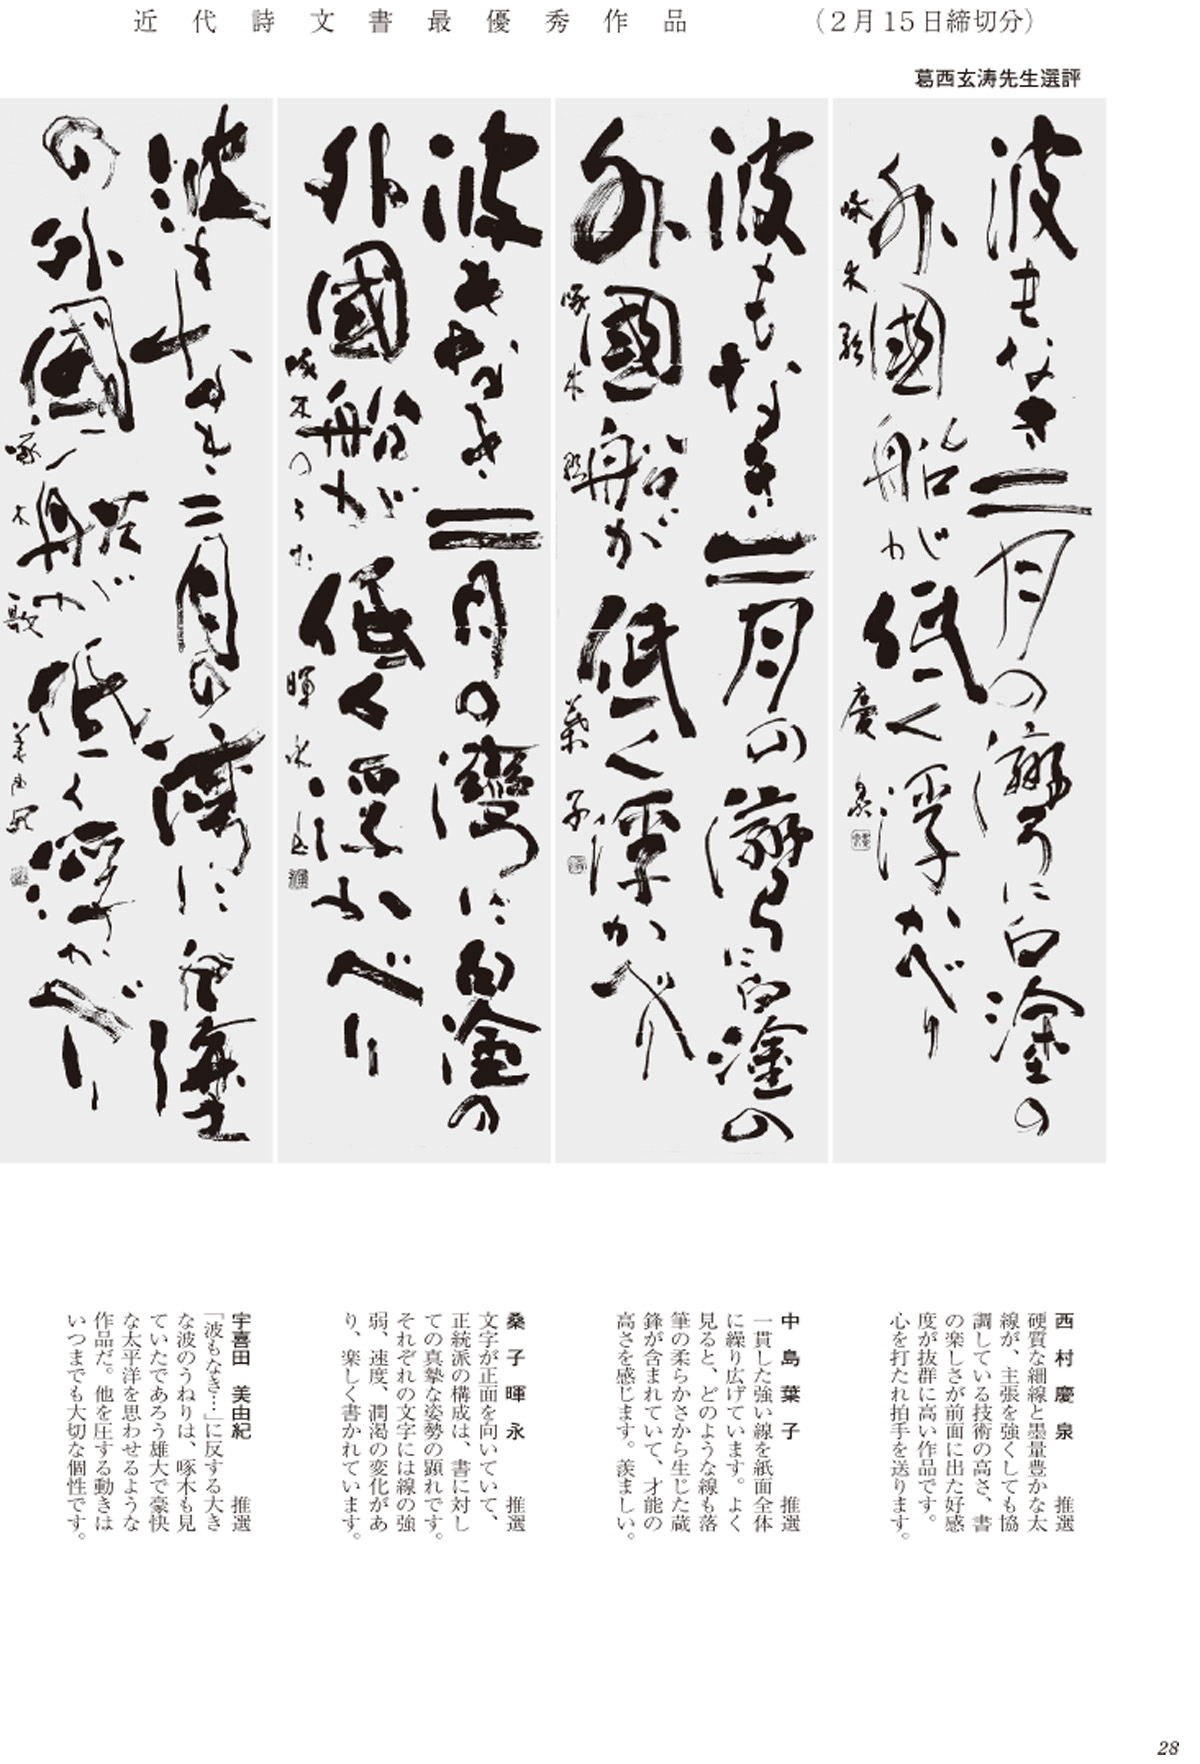 近代詩文書最優秀作品
（２月１５日締切分）
葛西玄涛先生選評
波もなき二月の湾に白塗の
外國船が低く浮かべり
啄木歌
慶泉
波もなき二月の湾に白塗の
外國船が低く浮かべり
啄木歌
葉子
波もなき二月の湾に白塗の
外國船が低く浮かべり
啄木のうた
暉永
波もなき二月の湾に白塗
の外國船が低く浮かべり
啄木歌
美由紀
西村慶泉 推選
硬質な細線と墨量豊かな太
線が、主張を強くしても協
調している技術の高さ、書
の楽しさが前面に出た好感
度が抜群に高い作品です。
心を打たれ拍手を送ります。
中島葉子 推選
一貫した強い線を紙面全体
に繰り広げています。よく
見ると、どのような線も落
筆の柔らかさから生じた蔵
鋒が含まれていて、才能の
高さを感じます。羨ましい。
桑子暉永 推選
文字が正面を向いていて、
正統派の構成は、書に対し
ての真摯な姿勢の顕れです。
それぞれの文字には線の強
弱、速度、潤渇の変化があ
り、楽しく書かれています。
宇喜田 美由紀 推選
「波もなき…」に反する大き
な波のうねりは、啄木も見
ていたであろう雄大で豪快
な太平洋を思わせるような
作品だ。他を圧する動きは
いつまでも大切な個性です。
28